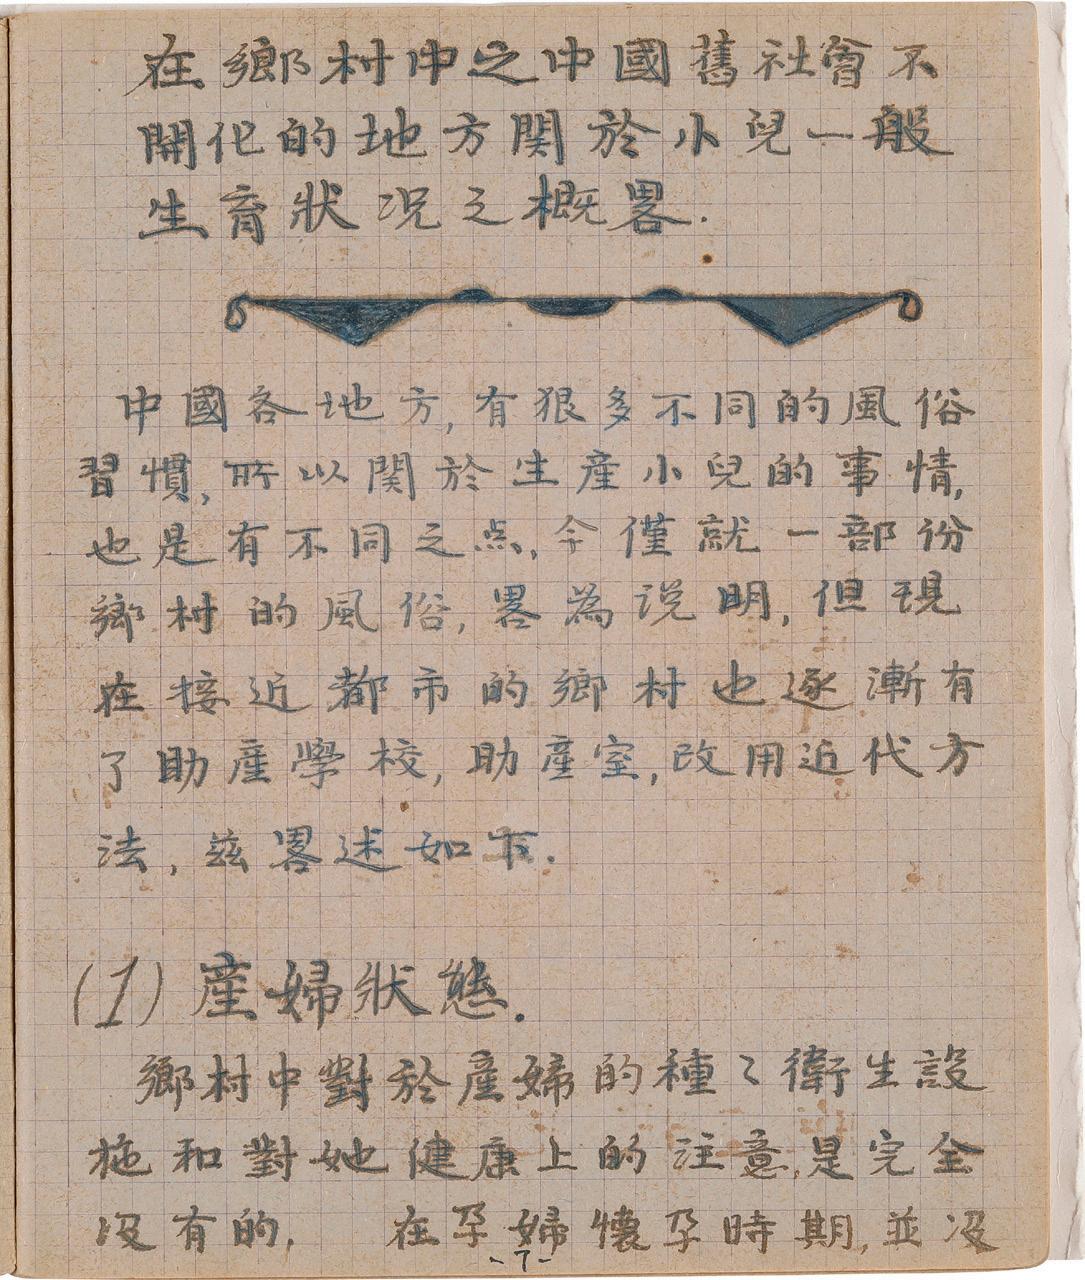 在鄉村中之中國舊社會不
開化的地方関於小兒一般
生育狀况之概畧.
中國各地方,有狠多不同的風俗
習慣,所以関於生産小兒的事情,
也是有不同之点,今僅就一部份
鄉村的風俗,畧為说明,但現
在接近都市的鄉村也逐漸有
了助産學校,助産室,改用近代方
法,茲畧述如下.
(1)産婦狀態.
鄉村中對於産婦的種〻衛生設
施和對她健康上的注意,是完全
没有的, 在孕婦懷孕時期,並没
-7-